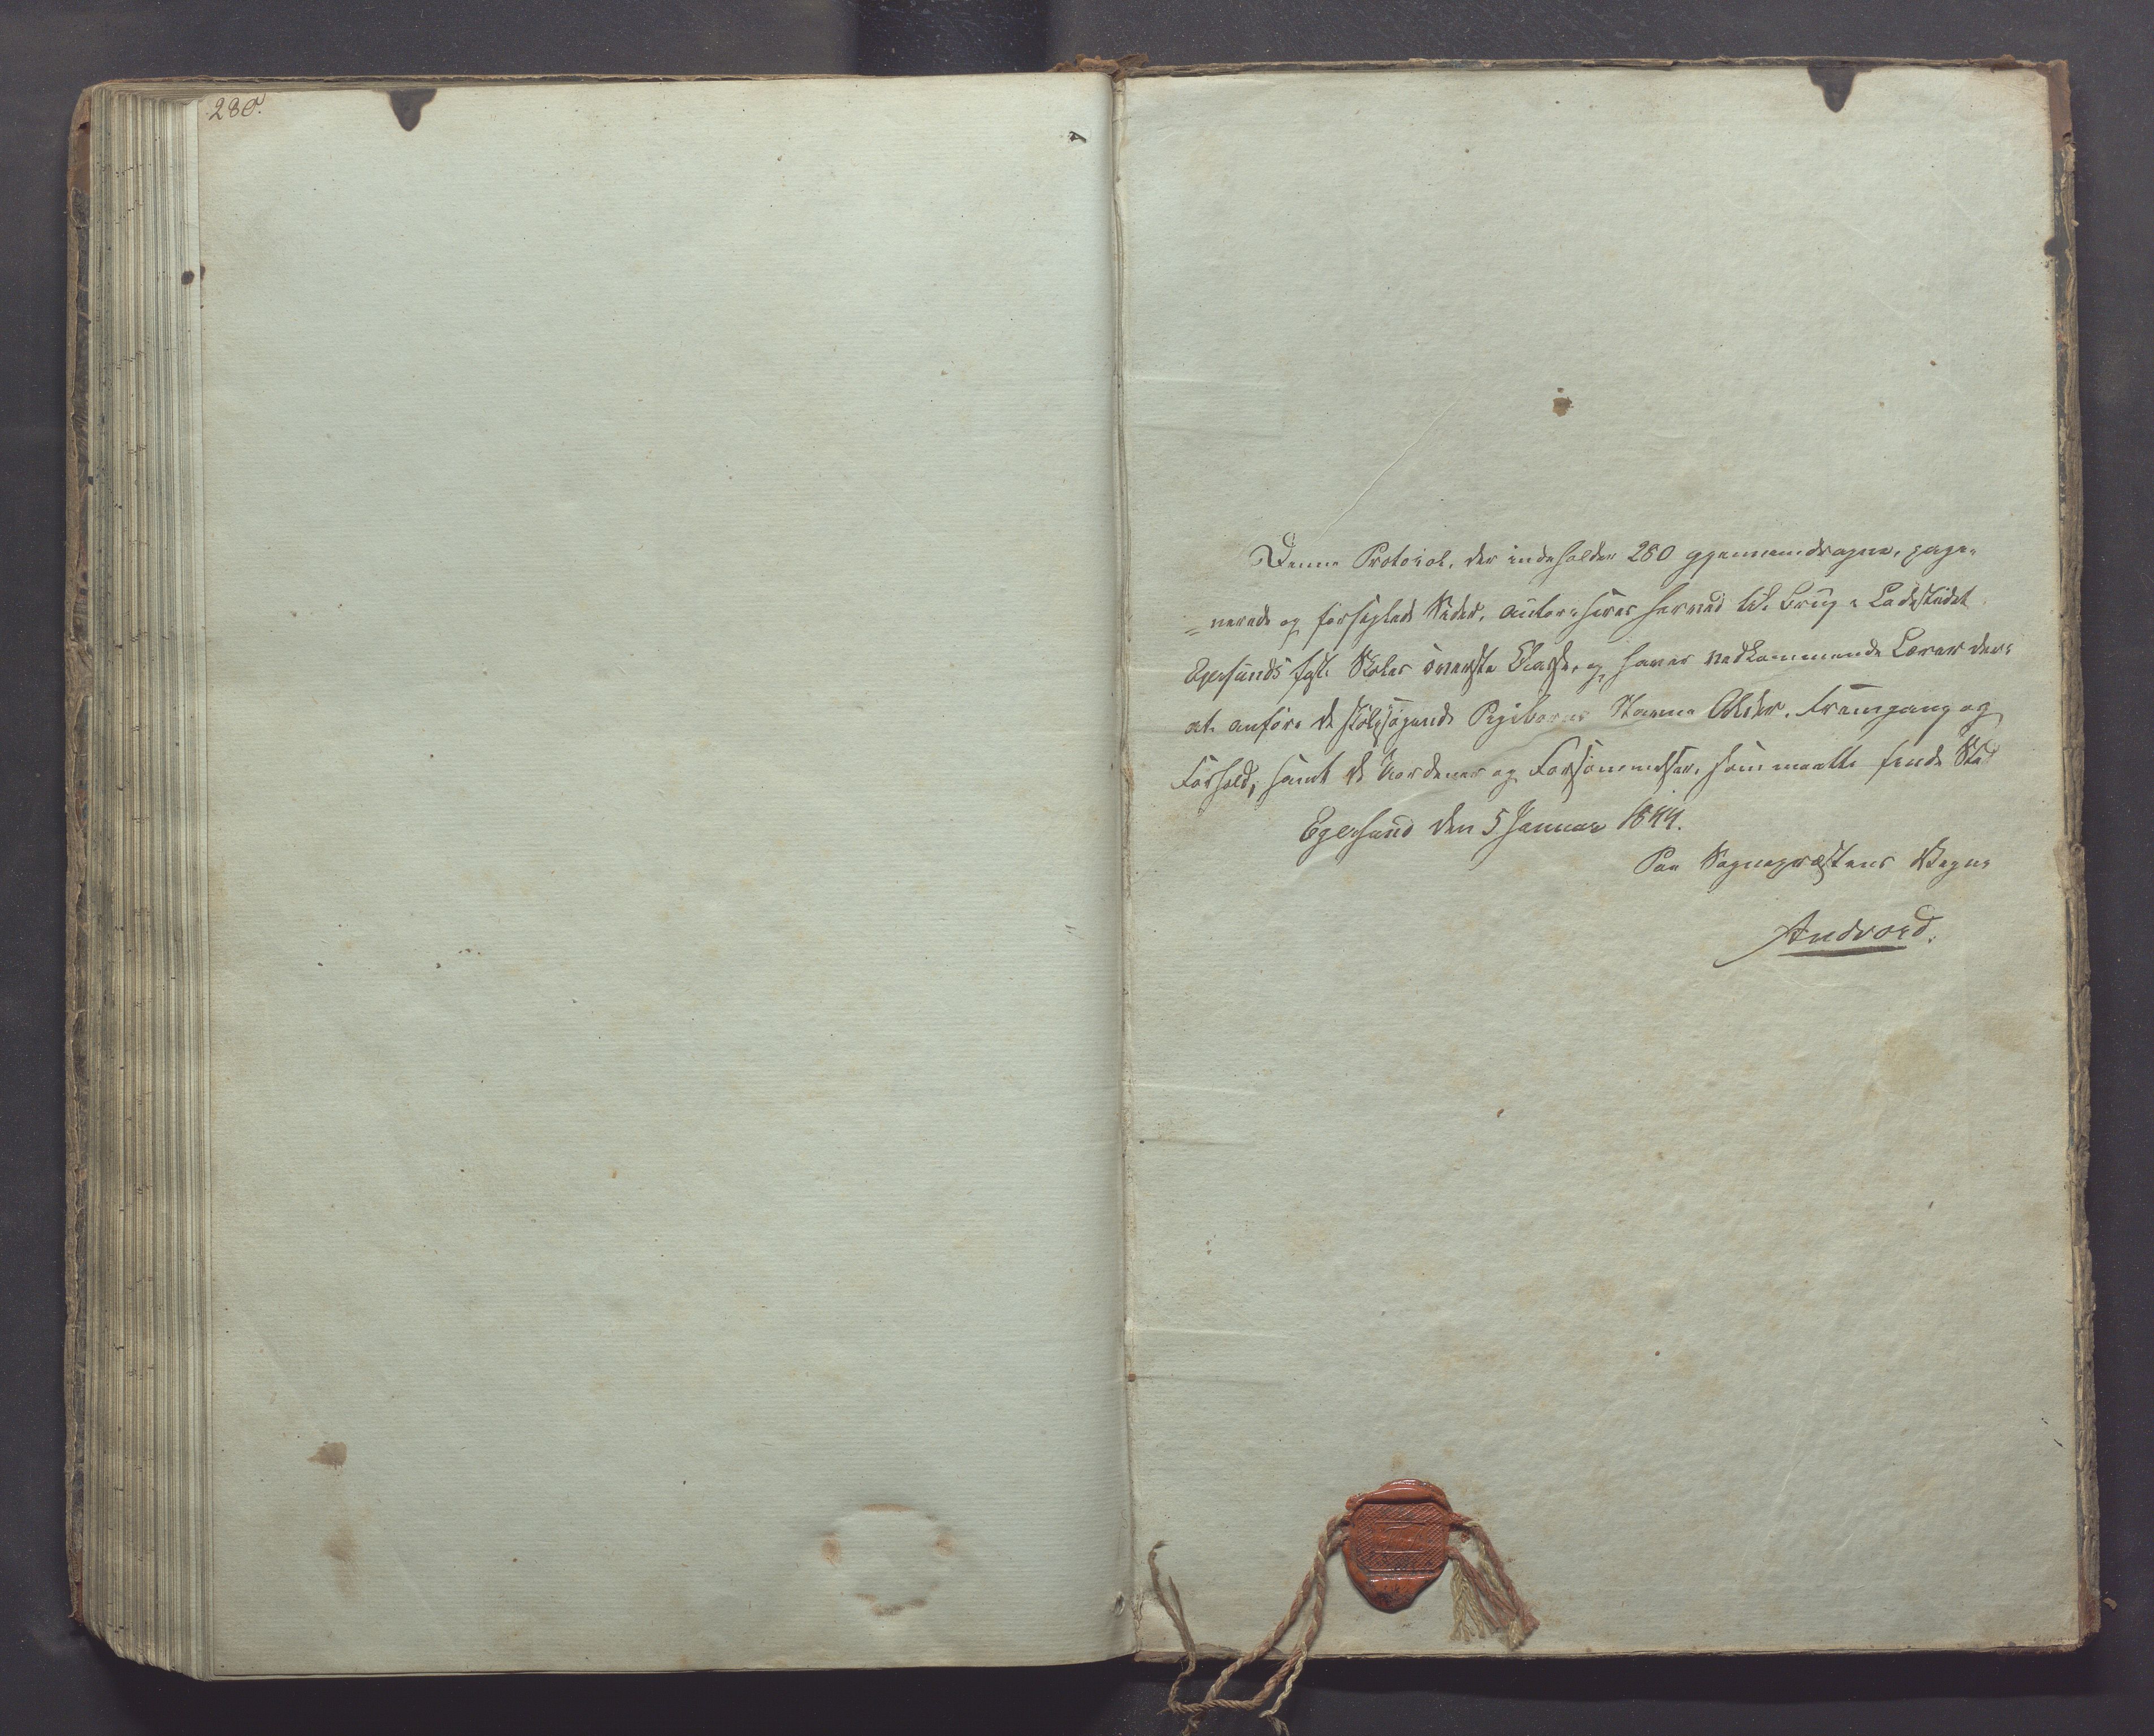 280.
Denne Protocol, der indeholder 280 gjennemdragne, page-
=nerede og forseglede Sider, autoriseres herved til Brug i Ladestedet
Egersunds faste Skoles øverste Classe, og haver vedkommende Lærer deri
at anføre de skolesøgende Pigebørns Navne Alder, Fremgang og
Forhold, samt de og Forsømmelser, som maatte finde Sted
Egersund den 5 Januar 1844.
Paa Sognepræstens Vegne
Andvord.